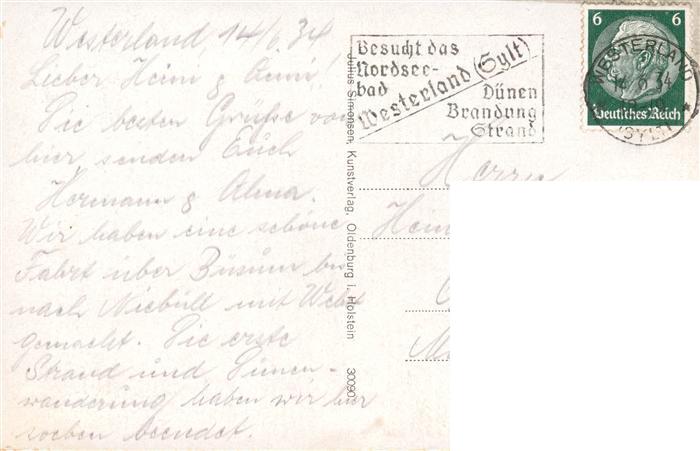 Westerland, 14/6.34
Lieber Heini & Anni!
Die besten Grüße von
hier senden Euch
Hermann & Alma.
Wir haben eine schöne
Fahrt über Büsum bis
nach Niebüll mit
gemacht. Die erste
Strand und Dünen-
wanderung haben wir hier
soeben beendet.
Julius Simonsen, Kunstverlag, Oldenburg i. Holstein 30090
Besucht das
Nordsee-
bad
Westerland (Sylt)
Dünen
Brandung
Strand
6 6
Deutsches Reich
WESTERLAND
14. 6. 34
(SYLT)
Herrn
Hein